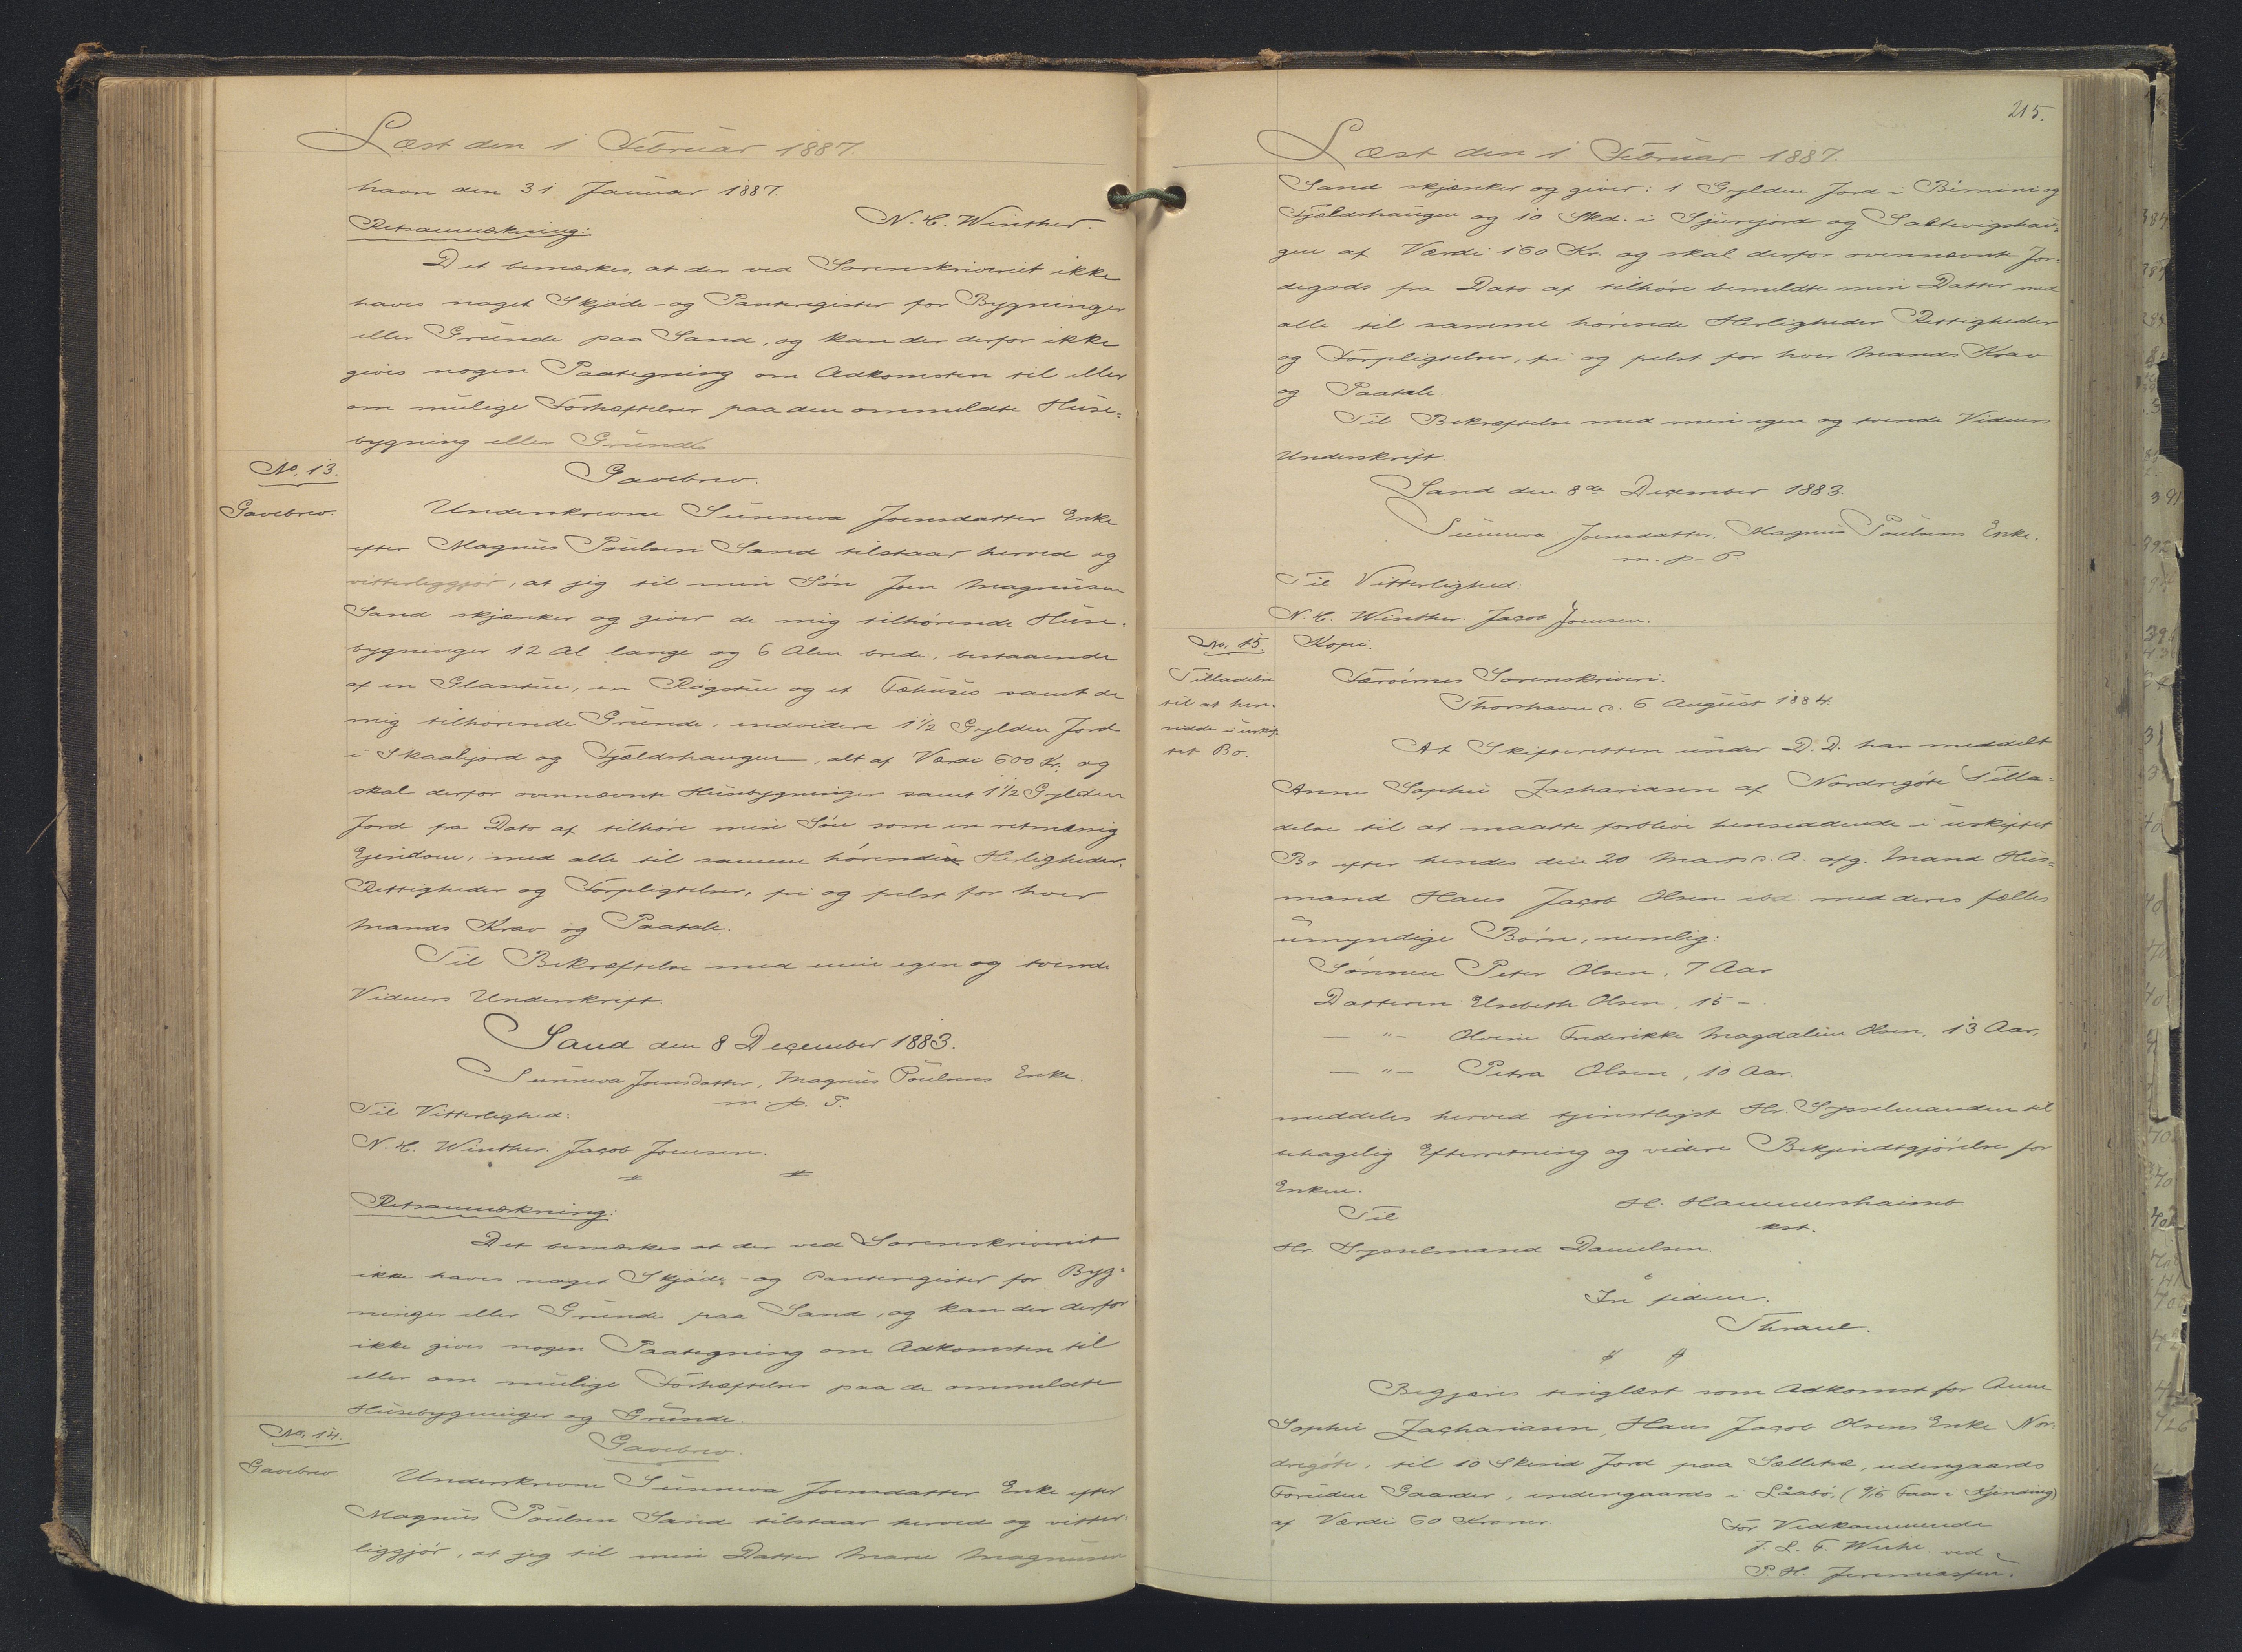 Læst den 1 Februar 1887.
havn den 31 Januar 1887.
N. C. Winther.
Retsanmærkning:
Det bemærkes, at der ved Sorenskriveriet ikke
haves noget Skjøde- og Panteregister for Bygninger
eller Grunde paa Sand, og kan der derfor ikke
gives nogen Paategning om Adkomsten til eller
om mulige Forhæftelser paa den ommeldte Huse-
bygning eller Grund.
No. 13.
Gavebrev.
Gavebrev.
Underskrevne Sunneva Joensdatter Enke
efter Magnus Poulsen Sand tilstaar herved og
vitterliggjør, at jeg til min Søn Joen Magnussen
Sand skjænker og giver de mig tilhørende Huse-
bygninger 12 Al lange og 6 Alen brede, bestaaende
af en Glasstue, en Røgstue og et Fæhuus samt de
mig tilhørende Grunde, endvidere 1 1/2 Gylden Jord
i Skaalijord og Fjældshaugen, alt af Værdi 600 Kr. og
skal derfor ovennævnte Husebygninger samt 1 1/2 Gylden
Jord fra Dato af tilhøre min Søn som en retmæsig
Ejendom, med alle til samme hørende Herligheder,
Rettigheder og Forpligtelser, fri og frelst for hver
Mands Krav og Paatale.
Til Bekræftelse med min egen og tvende
Vidners Underskrift.
Sand den 8 December 1883.
Sunneva Joensdatter, Magnus Poulsens Enke.
m. p. P.
Til Vitterlighed:
N. C. Winther. Jacob Joensen.
Retsanmærkning:
Det bemærkes at der ved Sorenskriveriet
ikke haves noget Skjøde- og Panteregister for Byg-
ninger eller Grunde paa Sand, og kan der derfor
ikke gives nogen Paategning om Adkomsten til
eller om mulige Forhæftelser paa de ommeldte
Husebygninger og Grunde.
No. 14.
Gavebrev.
Gavebrev
Underskrevne Sunneva Joensdatter Enke efter
Magnus Poulsen Sand tilstaar herved og vitter-
liggjør, at jeg til min Datter Marie Magnussen
215.
Læst den 1 Februar 1887.
Sand skjænker og giver: 1 Gylden Jord i og
Fjældshaugen og 10 Skd. i Sjurejord og Saltevigshau-
gen af Værdi 160 Kr. og skal derfor ovennævnte Jor-
degods fra Dato af tilhøre bemeldte min Datter med
alle til samme hørende Herligheder Rettigheder
og Forpligtelser, fri og frelst for hver Mands Krav
og Paatale.
Til Bekræftelse med min egen og tvende Vidners
Underskrift.
Sand den 8de December 1883.
Sunneva Joensdatter. Magnus Poulsens Enke.
m. p. P.
Til Vitterlighed:
N. C. Winther. Jacob Joensen.
No. 15.
Kopi.
Tilladelse
til at hen-
sidde i uskif-
tet Bo.
Færøernes Sorenskriveri.
Thorshavn d. 6 August 1884.
At Skifteretten under D. D. har meddelt
Anne Sophie Zachariasen af Nordregøte Tilla-
delse til at maatte forblive hensiddende i uskiftet
Bo efter hendes den 20 Marts d. A. afg. Mand Hus-
mand Hans Jacob Olsen ibd. med deres fælles
umyndige Børn, nemlig:
Sønnen Peter Olsen, 7 Aar
Datteren Elsebeth Olsen, 15 -.
— " — Olvine Frederikke Magdalene Olsen, 13 Aar,
— " — Petra Olsen, 10 Aar.
meddeles herved tjenstligst Hr. Sysselmanden til
behagelig Efterretning og videre Bekjendtgjørelse for
Enken.
H. Hammershaimb.
kst.
Til
Hr. Sysselmand Danielsen.
In fidem.
Thraue.
Begjæres tinglæst som Adkomst for Anne
Sophie Zachariasen, Hans Jacob Olsens Enke Nor-
dregøte, til 10 Skind Jord paa udengaards
Foruden Gaarder, indengaards i Låabø.
af Værdi 60 Kroner.
For Vedkommende
J. L. F. Weihe ved
P. H. Jeremiassen.